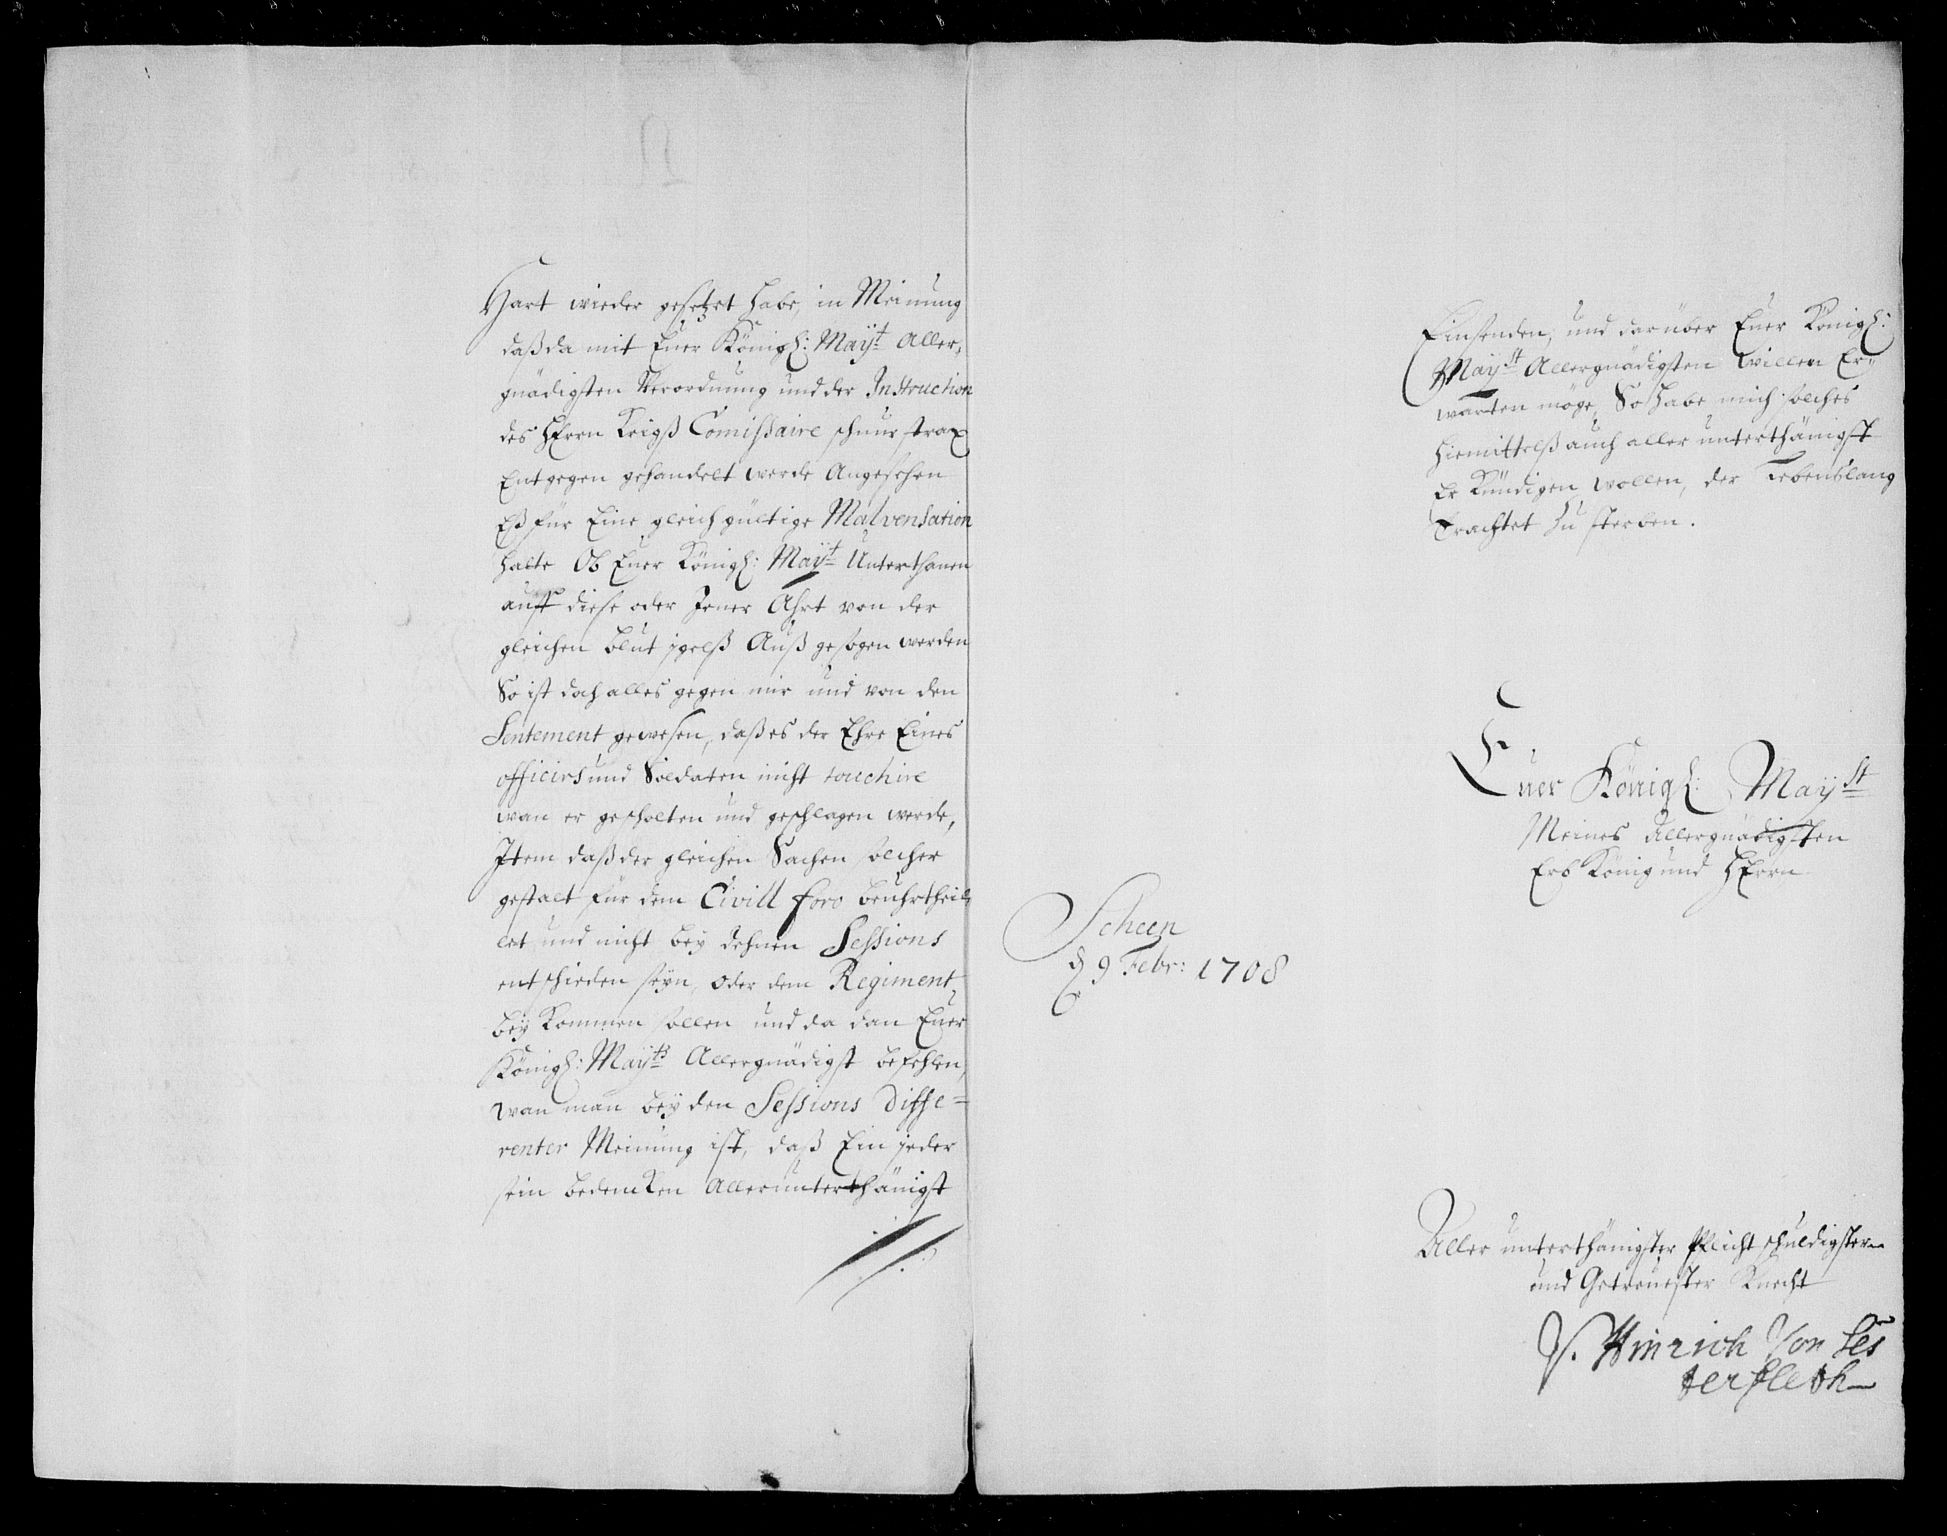 Hart wieder gesetzet habe, in Meinung
daß da mit Euer Königl: Mayt Aller,
gnädigsten Verordnung und der Instruction
des HErrn Krigß Comissaire schnur strax
Entgegen gehandelt werde Angesehen
Eß für Eine gleich gültige Malvensation
halte Ob Euer Königl: Mayt Unterthanen
auff diese oder Jener Ahrt von der
gleichen blut igelß Auß gesogen werden
So ist doch alles gegen mir und von den
Sentement gewesen, daß es der Ehre Eines
officirs und Soldaten nicht touchire
wan er gescholten und geschlagen werde,
Item daß der gleichen Sachen solcher
gestalt für dem Civill foro beuhrtheil,
let und nicht bey dehnen Sessions
entschieden seyn, oder dem Regiment,
bey kommen sollen und da dan Euer
Königl: Mayts Allergnädigst befehlen,
wan man bey den Sessions Diffe=
renter Meinung ist, daß Ein jeder
sein bedencken Allerunterthänigst
Einsenden, und darüber Euer Königl:
Mayst Allergnädigsten Willen Er,
warten möge, So habe mich solches
hiemittelß auch aller unterthänigst
Er Kündigen wollen, der Lebenslang
trachtet zu sterben.
Euer Königl: Mayst
Meines Allergnädigsten
Erb König und HErrn
Scheen
d 9 Febr: 1708
Aller unterthänigster Plicht schuldigster
und Getreuester Knecht
V. Hinrich Von Ses
terfleth